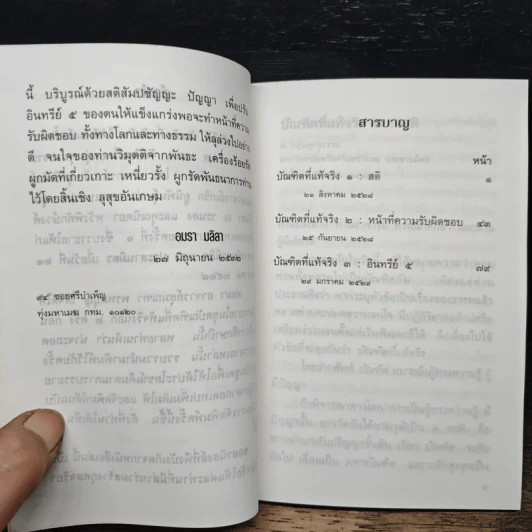 นี้ บริบูรณ์ด้วยสติสัมปชัญญะ ปัญญา เพื่อปรับ
อินทรีย์ ๕ ของตนให้แข็งแกร่งพอจะทำหน้าที่ความ
รับผิดชอบ ทั้งทางโลกและทางธรรม ให้ลุล่วงไปอย่าง
ดี จนใจของท่านวิมุตติจากพันธะ เครื่องร้อยรัด
ผูกมัดที่เกี่ยวเกาะ เหนี่ยวรั้ง ผูกรัดพันธนาการท่าน
ไว้โดยสิ้นเชิง ลุสุขอันเกษม
อมรา มลิลา
๒๗ มิถุนายน ๒๕๓๒
๙๔ ซอยศรีบำเพ็ญ
ทุ่งมหาเมฆ กทม. ๑๐๑๒๐
สารบาญ
หน้า
บัณฑิตที่แท้จริง ๑ : สติ ๑
๒๑ สิงหาคม ๒๕๒๘
บัณฑิตที่แท้จริง ๒ : หน้าที่ความรับผิดชอบ ๔๓
๒๕ กันยายน ๒๕๒๘
บัณฑิตที่แท้จริง ๓ : อินทรีย์ ๕ ๗๙
๒๙ มกราคม ๒๕๒๙